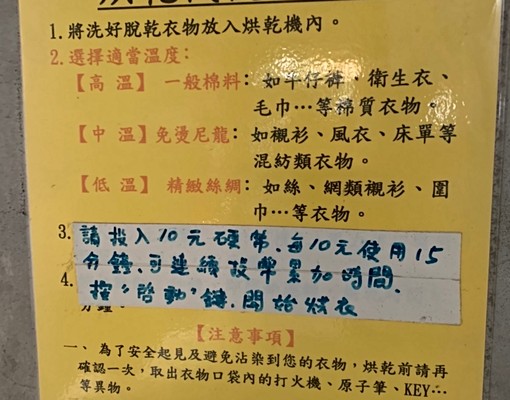 1.將洗好脫乾衣物放入烘乾機內。
2.選擇適當溫度：
【高 溫】 一般棉料：如牛仔褲、衛生衣、
毛巾…等棉質衣物。
【中 溫】免燙尼龍：如襯衫、風衣、床單等
混紡類衣物。
【低 溫】 精緻絲綢：如絲、網類襯衫、圍
巾…等衣物。
3.
請投入10元硬幣.每10元使用15
分鐘.可連續投幣累加時間.
4.
按"啓動"鍵.開始烘衣
分鐘。
【注意事項】
一、為了安全起見及避免沾染到您的衣物，烘乾前請再
確認一次，取出衣物口袋內的打火機、原子筆、KEY…
等異物。